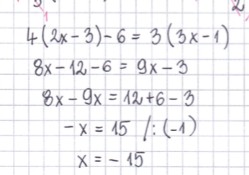 4(2x-3)-6=3(3x-1)
8x-12-6=9x-3
8x-9x=12+6-3
-x=15 /:(-1)
x=-15